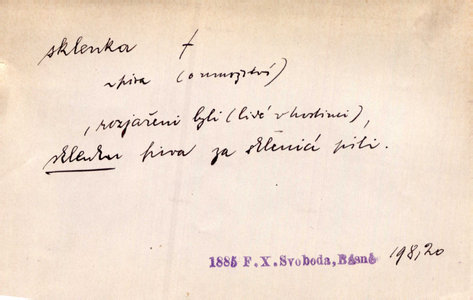 sklenka f
~ piva (o množství)
, rozjařeni byli (lidé v hodinci),
sklenku piva za sklenicí pili.
1885 F.X.Svoboda, Básně 198,20